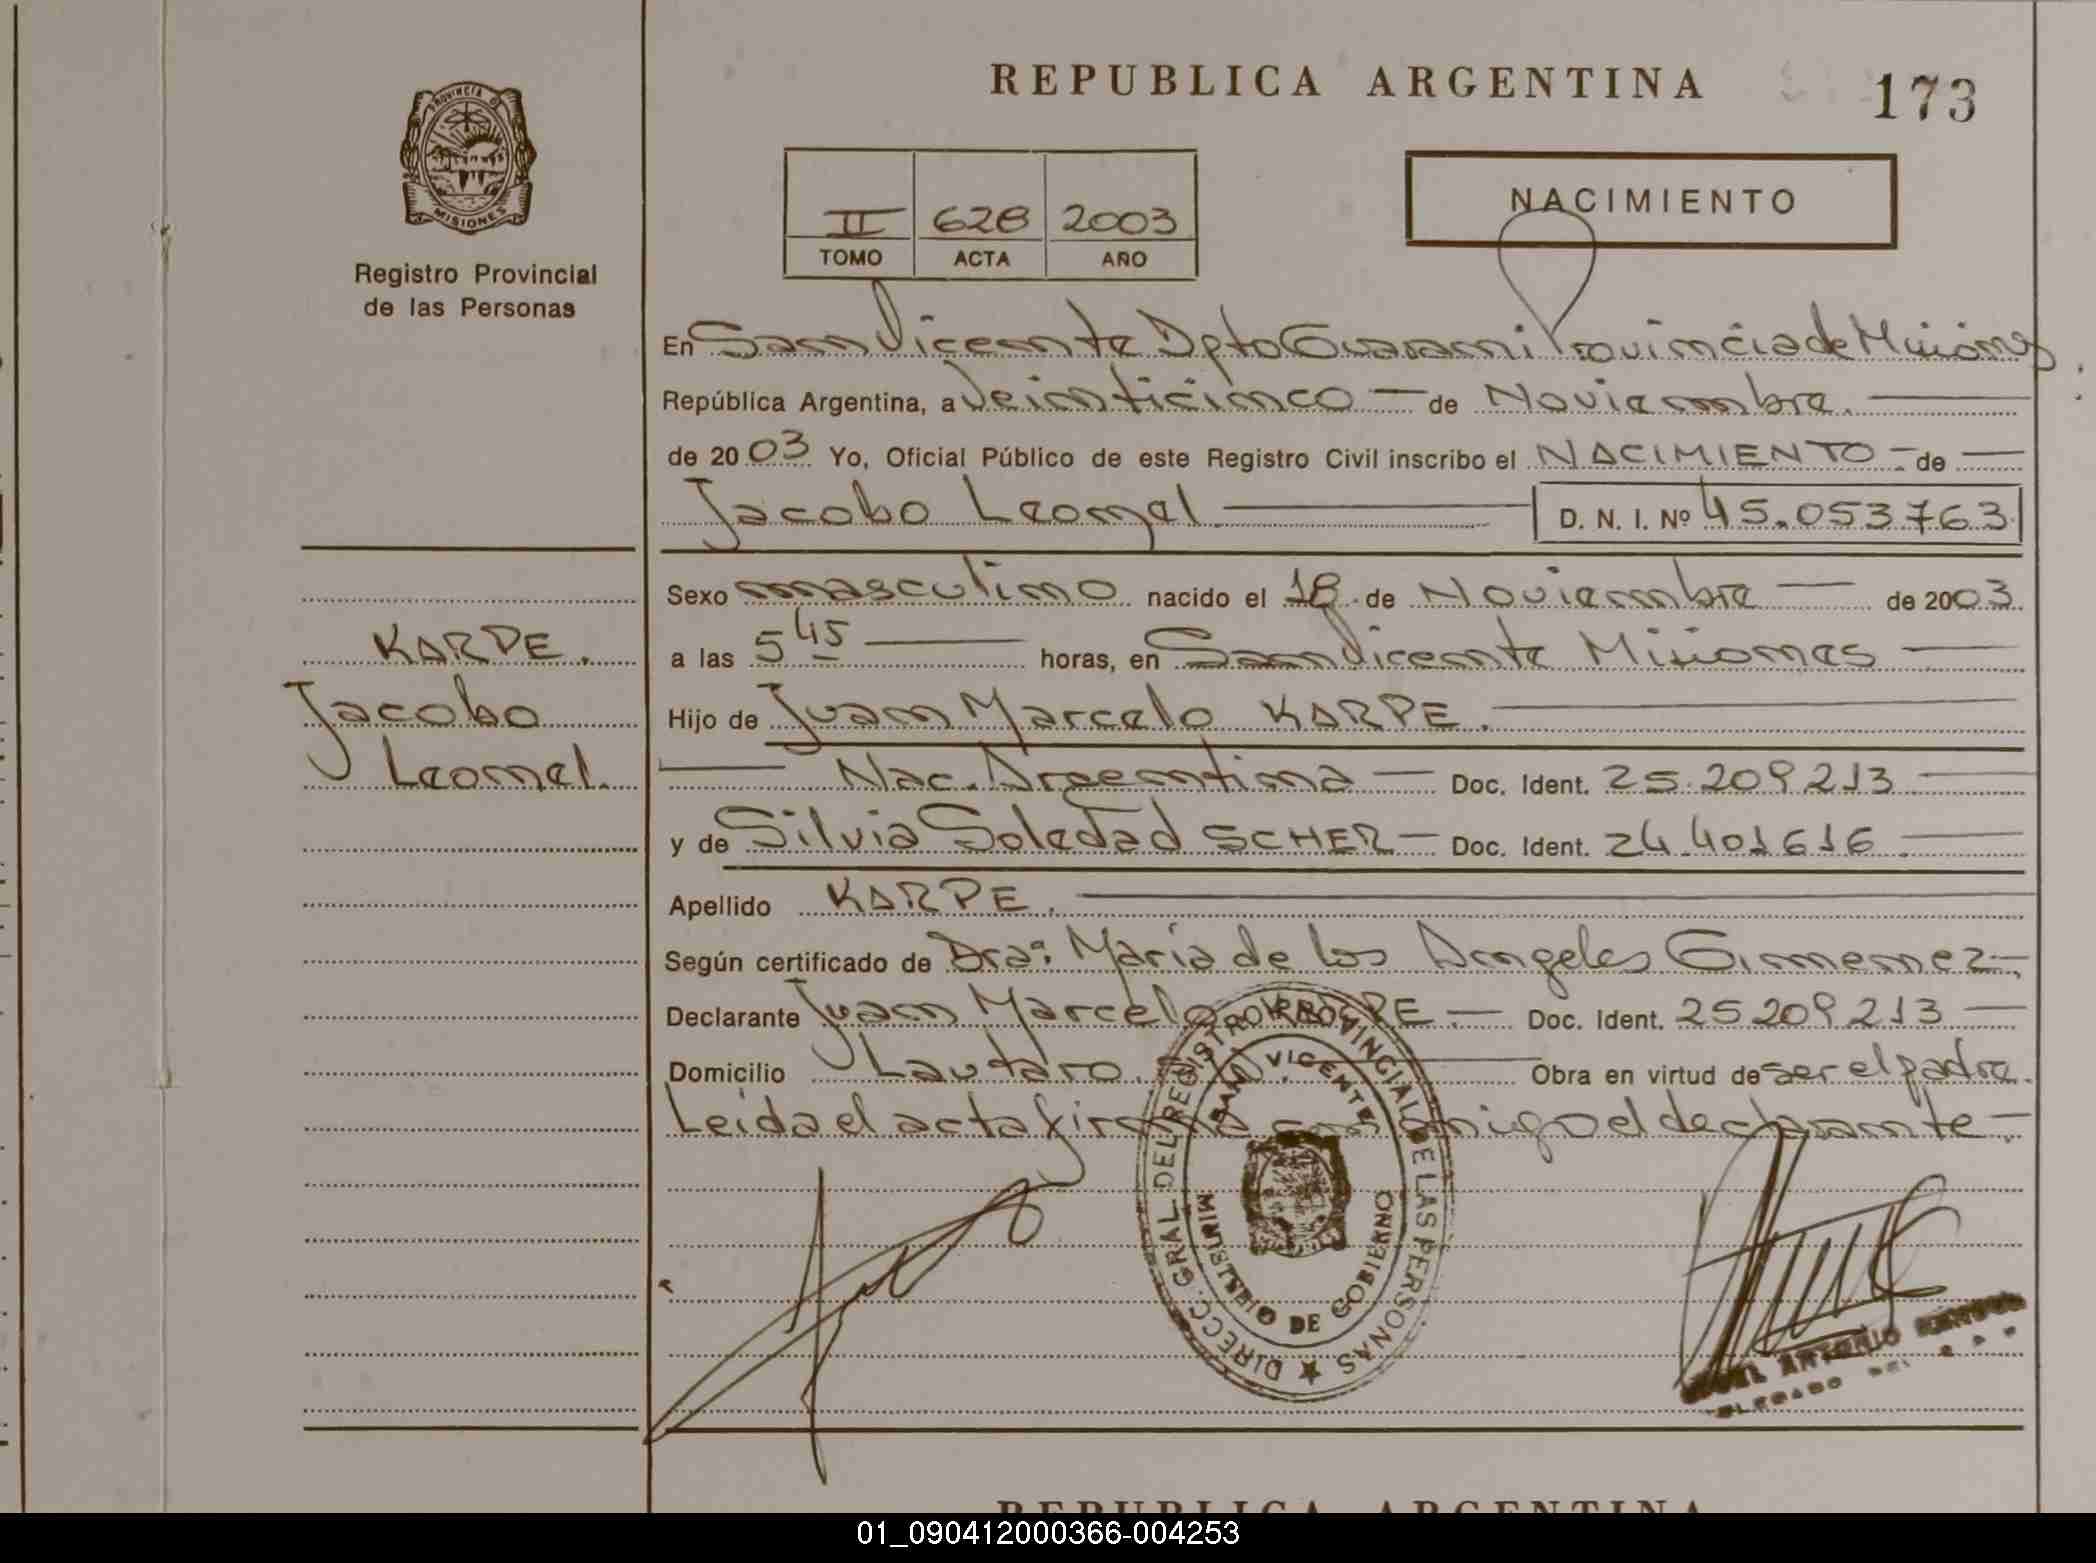 REPUBLICA ARGENTINA
173
PROVINCIA DE
MISIONES
Registro Provincial
de las Personas
II 628 2003
TOMO ACTA AÑO
NACIMIENTO
En San Vicente Dpto Guarani Provincia de Misiones
República Argentina, a Veinticinco — de Noviembre.
de 2003 Yo, Oficial Público de este Registro Civil inscribo el NACIMIENTO - de
Jacobo Leonel D. N. I. Nº 45.053763
Sexo masculino nacido el 18 de Noviembre de 2003
a las 5 45 horas, en San Vicente Misiones
Hijo de Juan Marcelo KARPE.
Nac. Argentina — Doc. Ident. 25.209213
y de Silvia Soledad SCHER — Doc. Ident. 24.401616
Apellido KARPE.
Según certificado de Dra: María de los Angeles Gimenez
Declarante Juan Marcelo KARPE. — Doc. Ident. 25209213
Domicilio Lautaro. Obra en virtud de ser el padre.
Leida el acta firma conmigo el declarante —
KARPE.
Jacobo
Leonel.
DIRECC. GRAL. DEL REGISTRO PROVINCIAL DE LAS PERSONAS
SAN VICENTE
MINISTERIO DE GOBIERNO
ANTONIO
REPUBLICA ARGENTINA
01_090412000366-004253